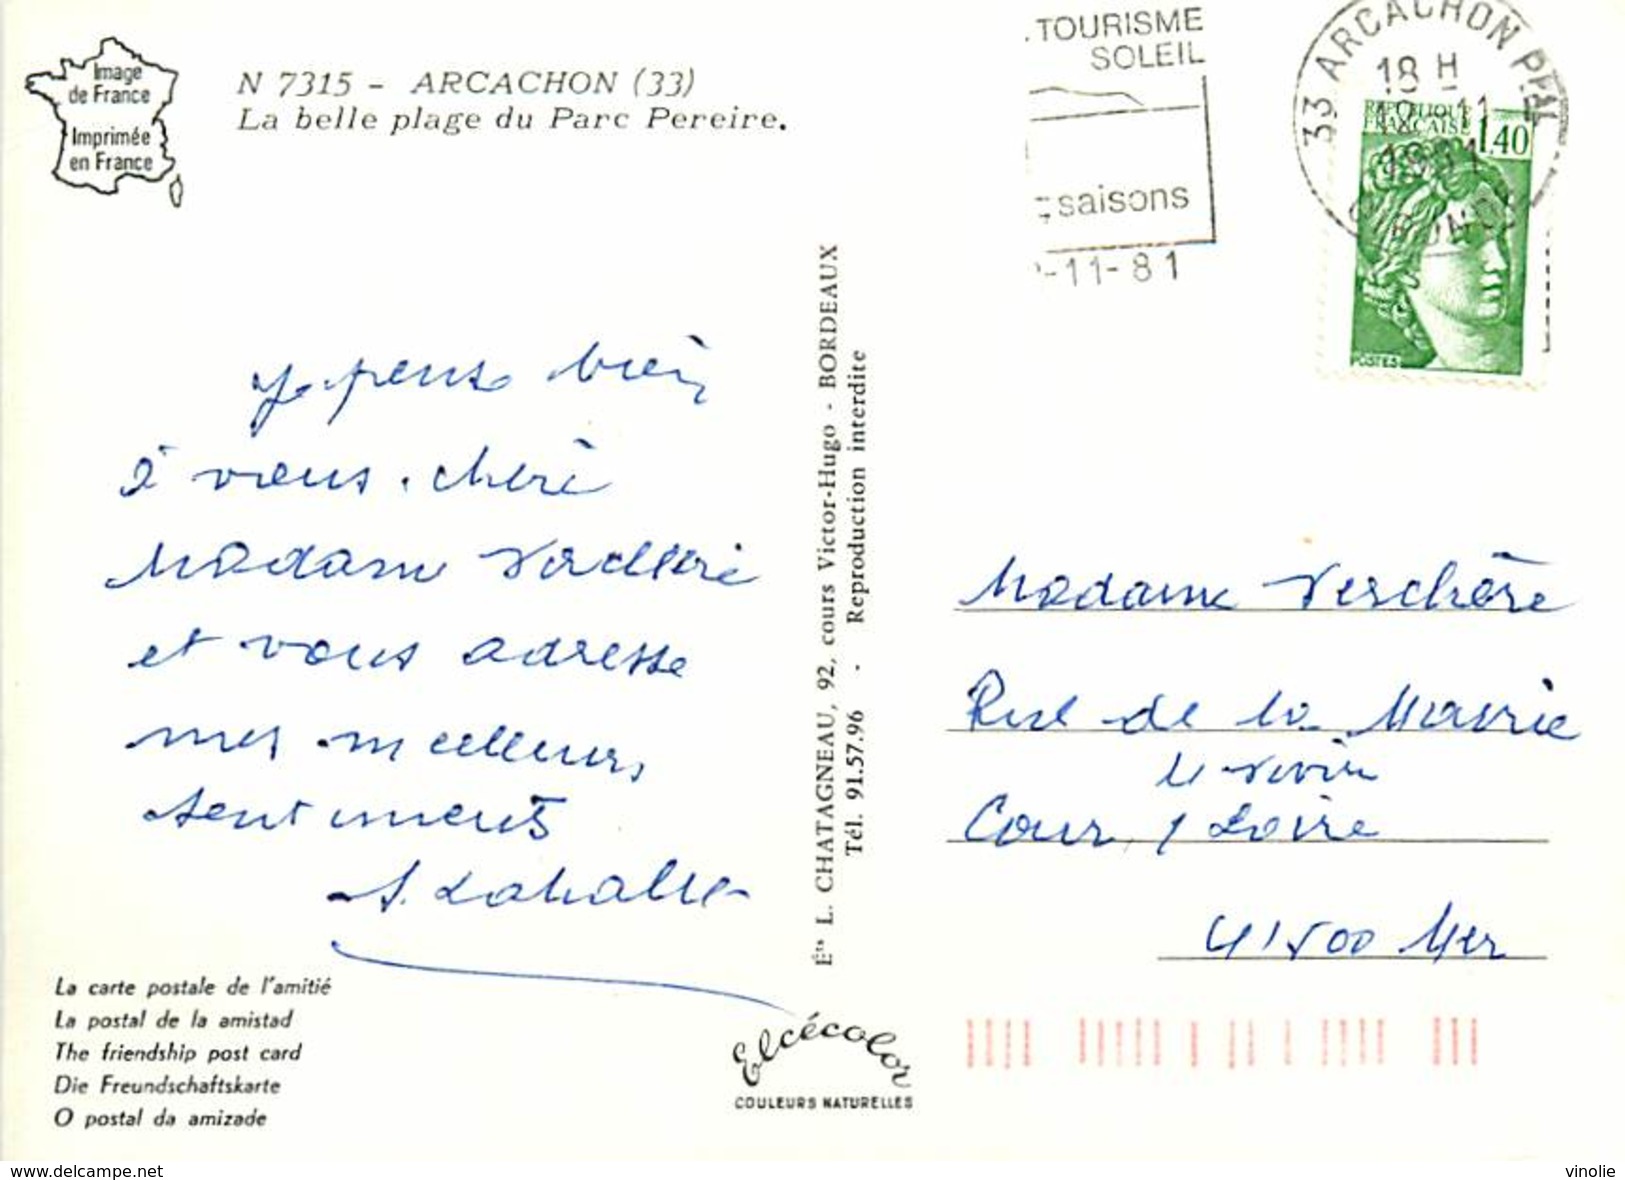 Image
de France
Imprimée
en France
N 7315 - ARCACHON (33)
La belle plage du Parc Pereire.
TOURISME
SOLEIL
saisons
-11-81
33 ARCACHON PPAL
18 H
11
1981
GIRONDE
REPUBLIQUE
FRANÇAISE
1,40
POSTES
Je pense bien
à vous. chère
Madame Verchère
et vous adresse
mes meilleurs
sentiments
Éts L. CHATAGNEAU, 92, cours Victor-Hugo - BORDEAUX
Tél. 91.57.96 - Reproduction interdite
Madame Verchère
Rue de la Mairie
Cour s/ Loire
41500 Mer
La carte postale de l'amitié
La postal de la amistad
The friendship post card
Die Freundschaftskarte
O postal da amizade
Elcécolor
COULEURS NATURELLES
www.delcampe.net
vinolie